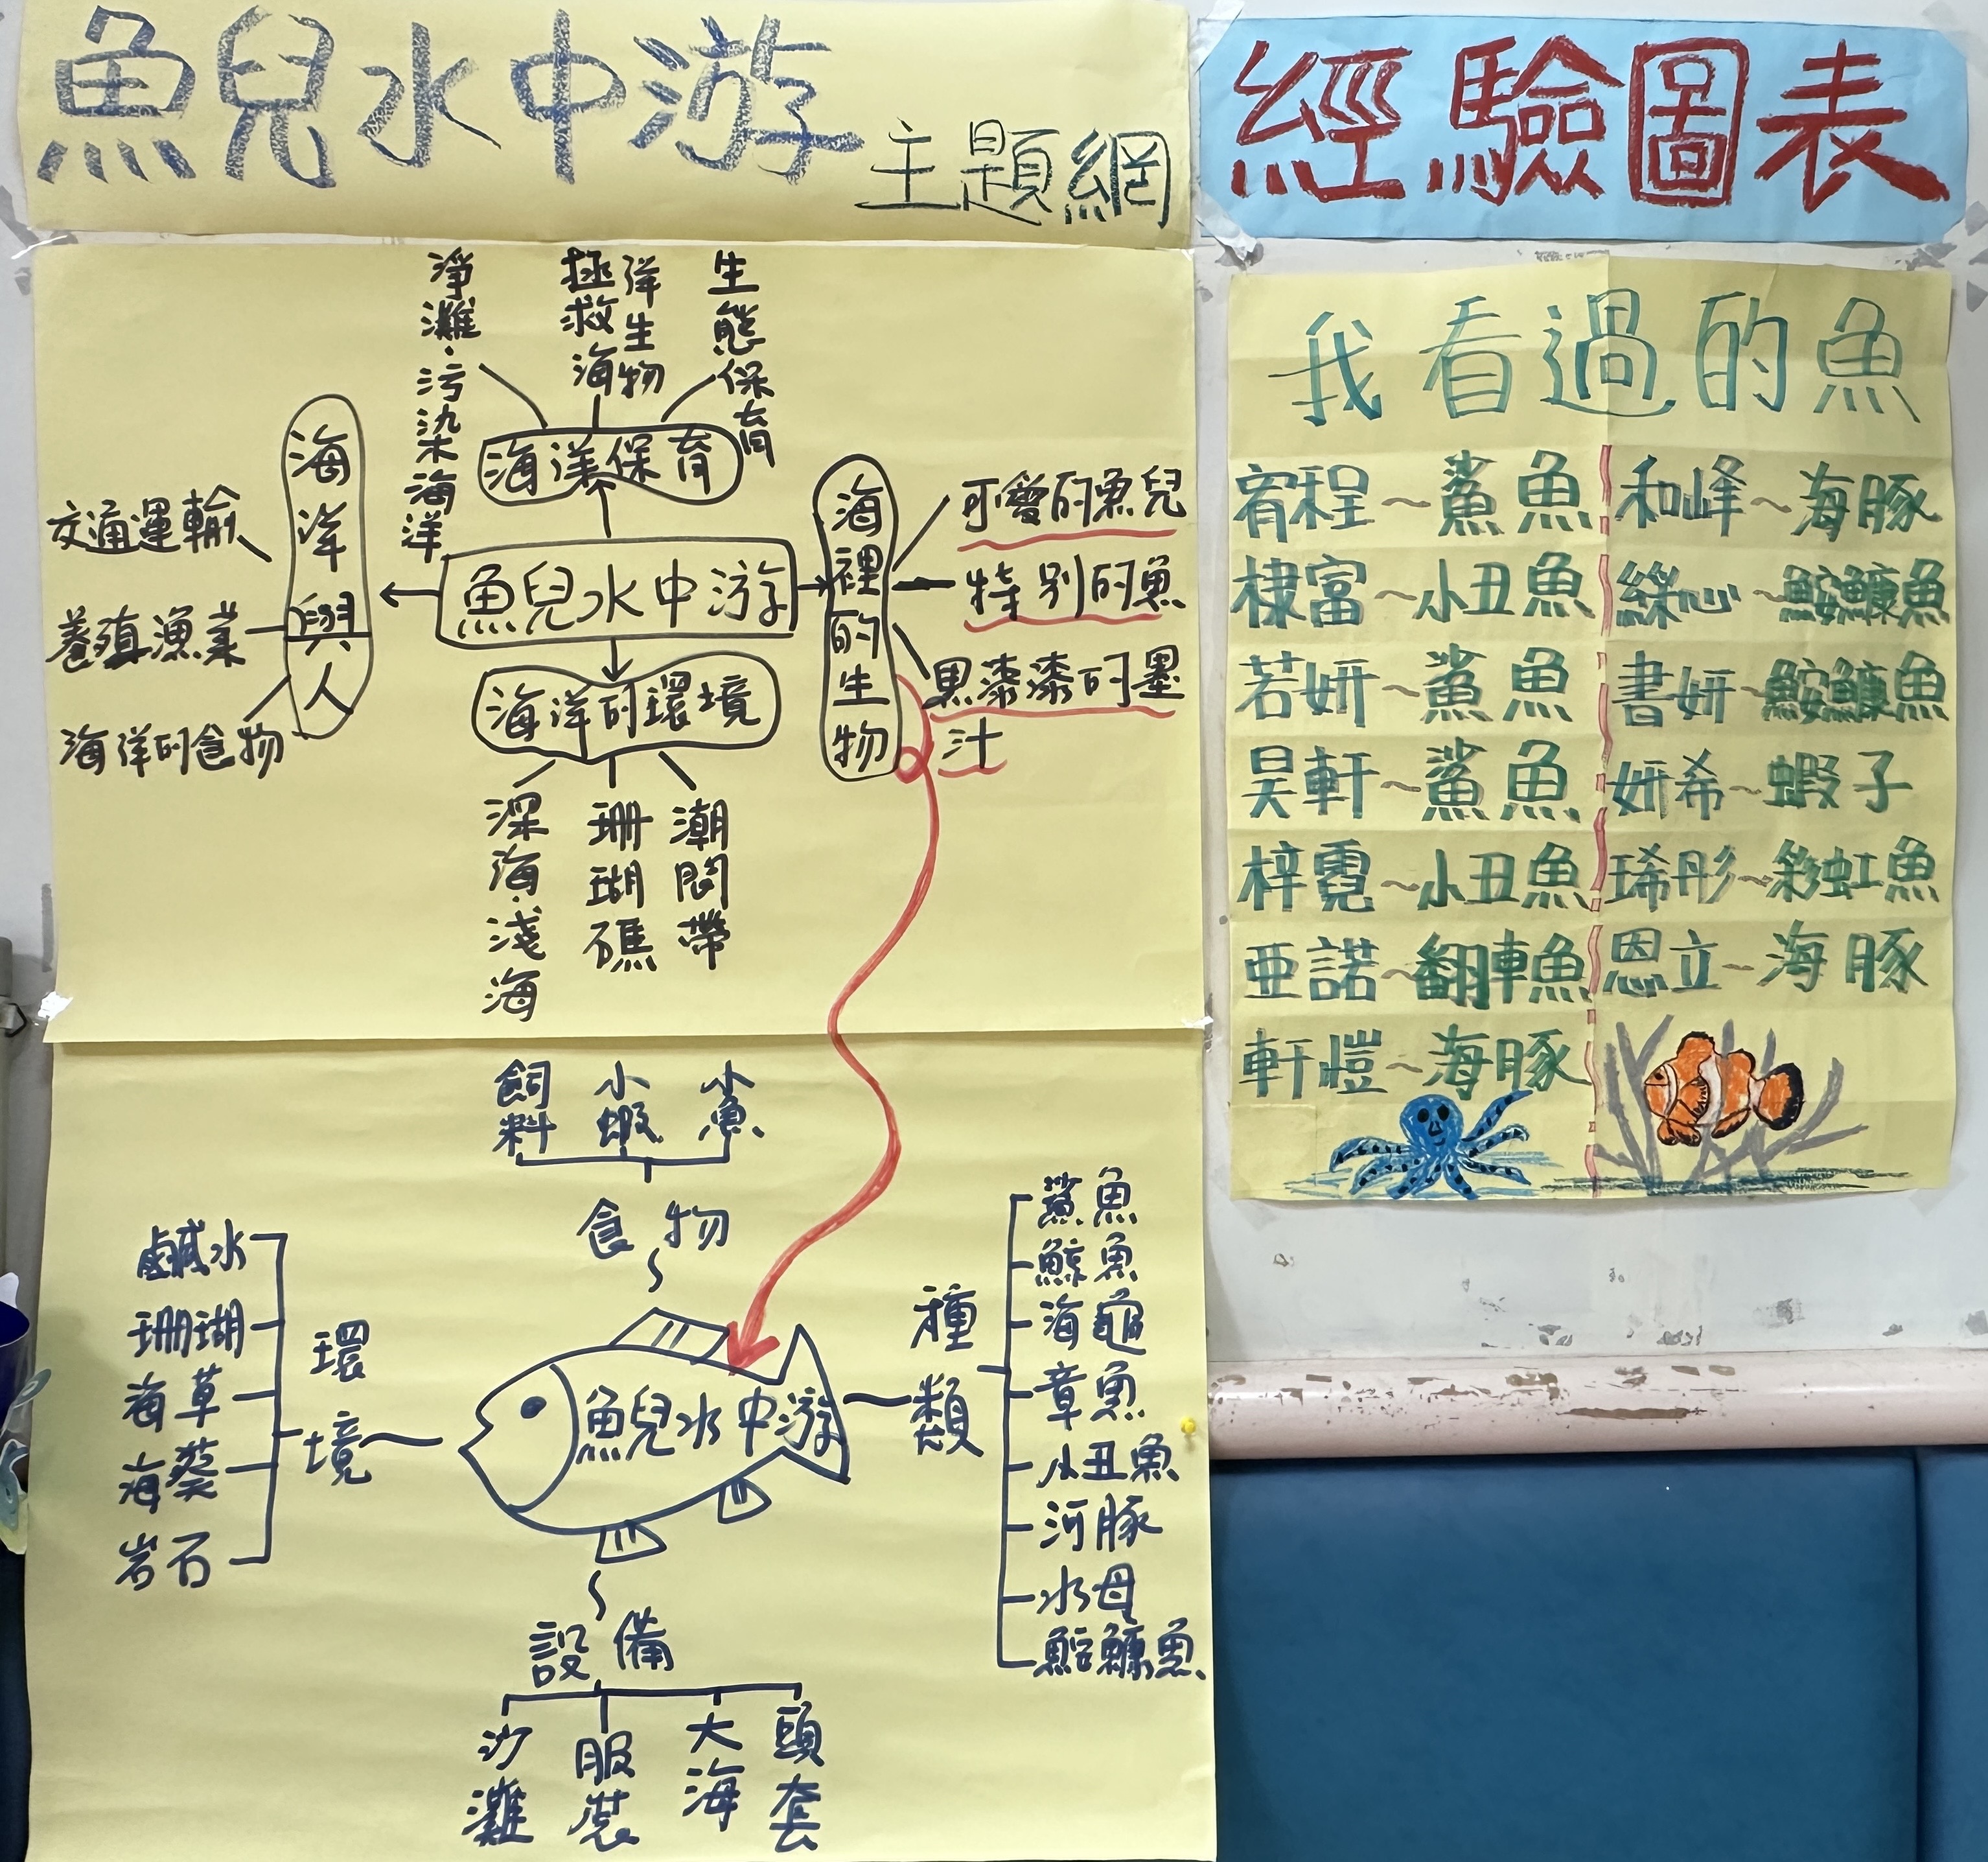 魚兒水中游
主題網
淨灘、污染海洋
拯救海洋生物
生態保育
海洋保育
海洋與人
交通運輸
養殖漁業
海洋的食物
魚兒水中游
海裡的生物
可愛的魚兒
特別的魚
黑漆漆的墨
汁
海洋的環境
深海、淺海
珊瑚礁
潮間帶
飼料
小蝦
小魚
食物
鹹水
珊瑚
海草
海葵
岩石
環境
魚兒水中游
種類
鯊魚
鯨魚
海龜
章魚
小丑魚
河豚
水母
鮟鱇魚
設備
沙灘
服裝
大海
頭套
經驗圖表
我看過的魚
宥程~鯊魚
棣富~小丑魚
若妍~鯊魚
昊軒~鯊魚
梓霓~小丑魚
亞諾~翻車魚
軒愷~海豚
和峰~海豚
繰心~鮟鱇魚
書妍~鮟鱇魚
妍希~蝦子
琋彤~彩虹魚
恩立~海豚